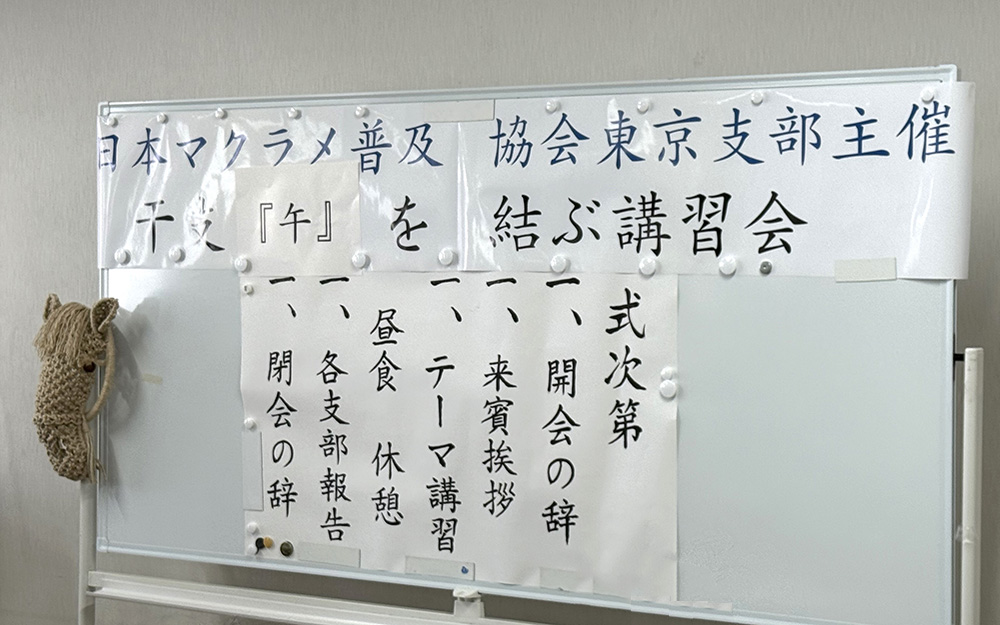 日本マクラメ普及 協会東京支部主催
干支『午』を 結ぶ講習会
式次第
一、開会の辞
一、来賓挨拶
一、テーマ講習
昼食 休憩
一、各支部報告
一、閉会の辞